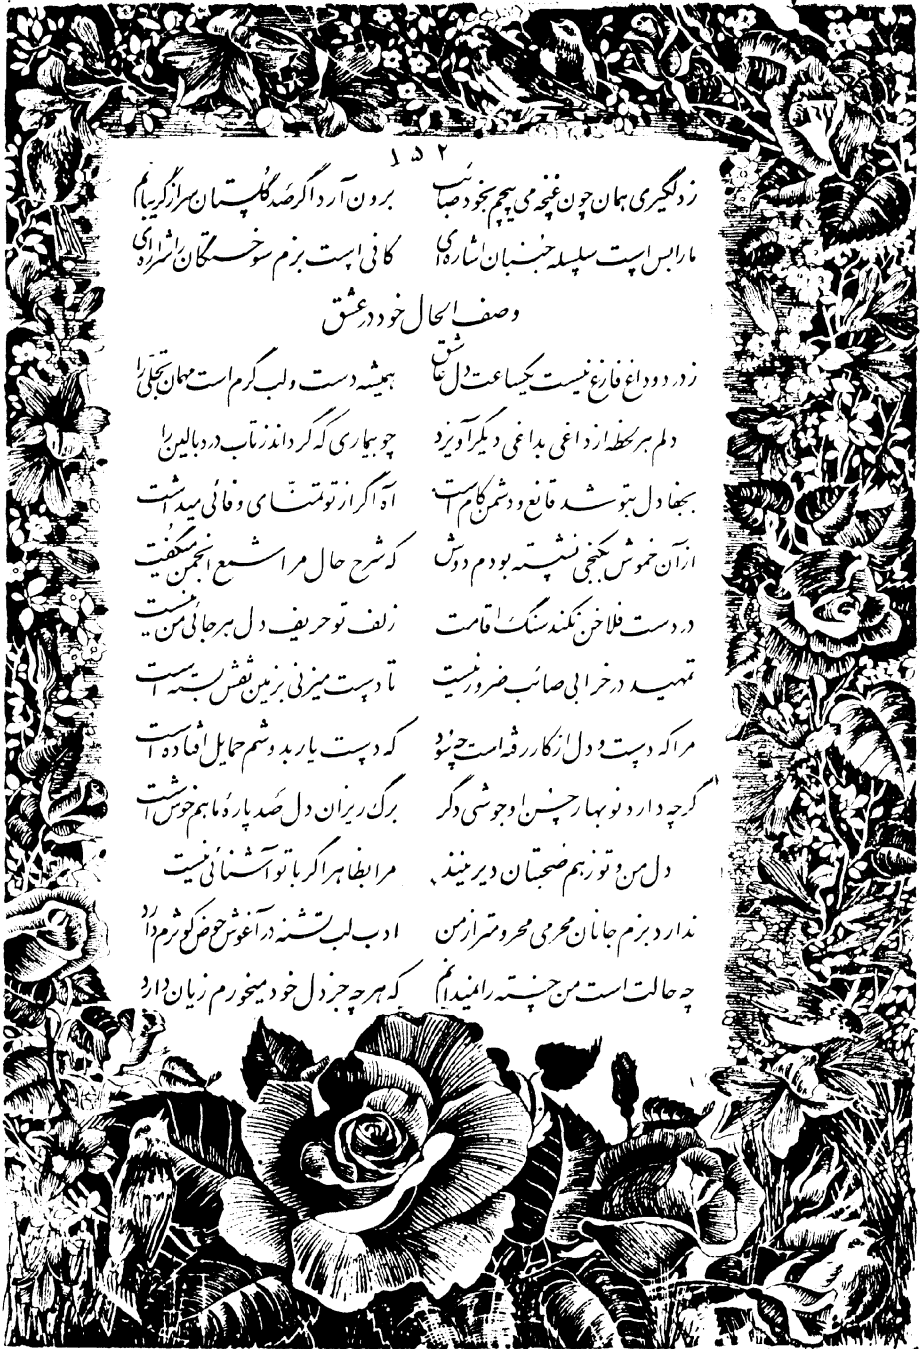 ۱۵۲
ز دلگیری همان چون غنچه می پیچم بخود صائب برون آرد اگر صد گلستان سر از گریبانم
ما را بس است سلسله جنبان اشاره ای کافی است بزم سوختگان را شراره ای
وصف الحال خود در عشق
ز درد و داغ فارغ نیست یکساعت دل عاشق همیشه دست و لب گرم است مهمان تجلی را
دلم هر لحظه از داغی بداغی دیگر آویزد چو بیماری که گرداند ز تاب درد بالین را
بجفا دل بتو شد قانع و دشمن کام است آه اگر از تو تمنای وفائی میداشت
از آن خموش بکنجی نشسته بودم دوش که شرح حال مرا شمع انجمن میگفت
در دست فلاخن نکند سنگ اقامت زلف تو حریف دل هر جائی من نیست
تمهید در خرابی صائب ضرور نیست تا دست میزنی بزمین نقش بسته است
مرا که دست و دل از کار رفته است چه سود که دست یار بدوشم حمایل افتاده است
گرچه دارد نو بهار حسن او جوشی دگر برگ ریزان دل صد پارهٔ ما هم خوش است
دل من و تو ز هم صحبتان دیرینند مرا بظاهر اگر با تو آشنائی نیست
ندارد بزم جانان محرمی محرومتر از من ادب لب تشنه در آغوش حوض کوثرم دارد
چه حالت است من خسته را نمیدانم که هر چه جز دل خود میخورم زیان دارد